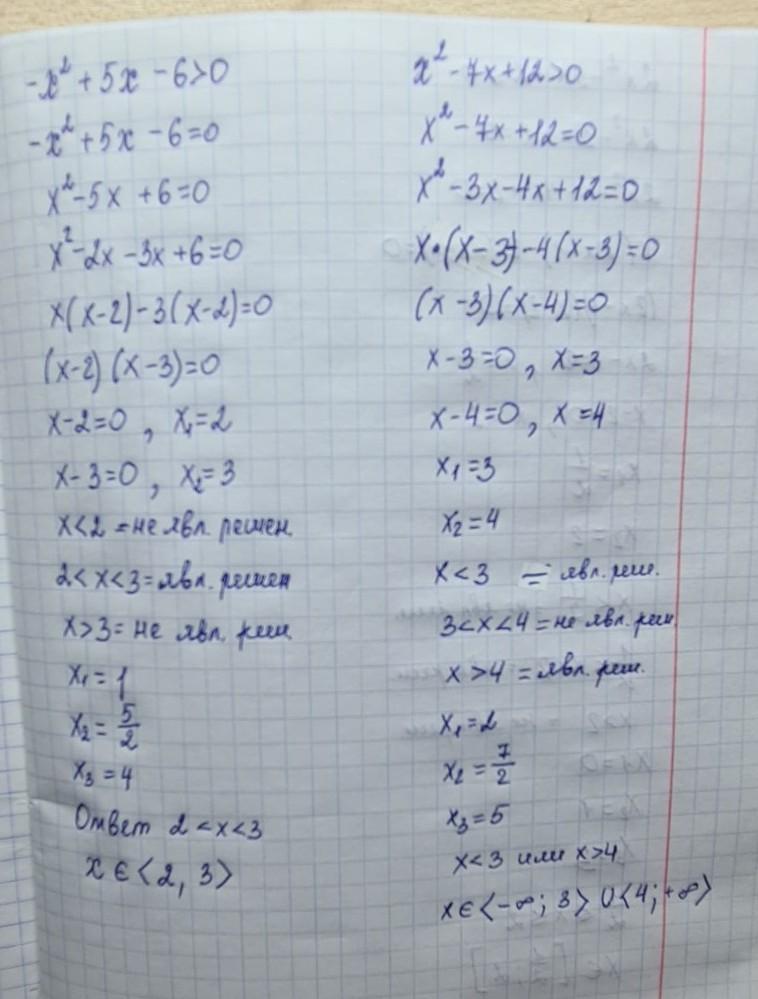 -x² + 5x - 6>0
-x² + 5x - 6=0
x² - 5x + 6=0
x² - 2x - 3x + 6=0
x(x-2)-3(x-2)=0
(x-2)(x-3)=0
x-2=0, x₁=2
x-3=0, x₂=3
x<2 = не явл. решен.
2<x<3 = явл. решен
x>3 = не явл. реш.
x₁ = 1
x₂ = 5/2
x₃ = 4
Ответ 2<x<3
x ∈ ⟨2, 3⟩
x² - 7x + 12>0
x² - 7x + 12=0
x² - 3x - 4x + 12=0
x•(x-3)-4(x-3)=0
(x-3)(x-4)=0
x-3=0, x=3
x-4=0, x=4
x₁=3
x₂=4
x<3 = явл. реш.
3<x<4 = не явл. реш
x>4 = явл. реш.
x₁=2
x₂ = 7/2
x₃=5
x<3 или x>4
x∈⟨-∞; 3⟩ U⟨4; +∞⟩